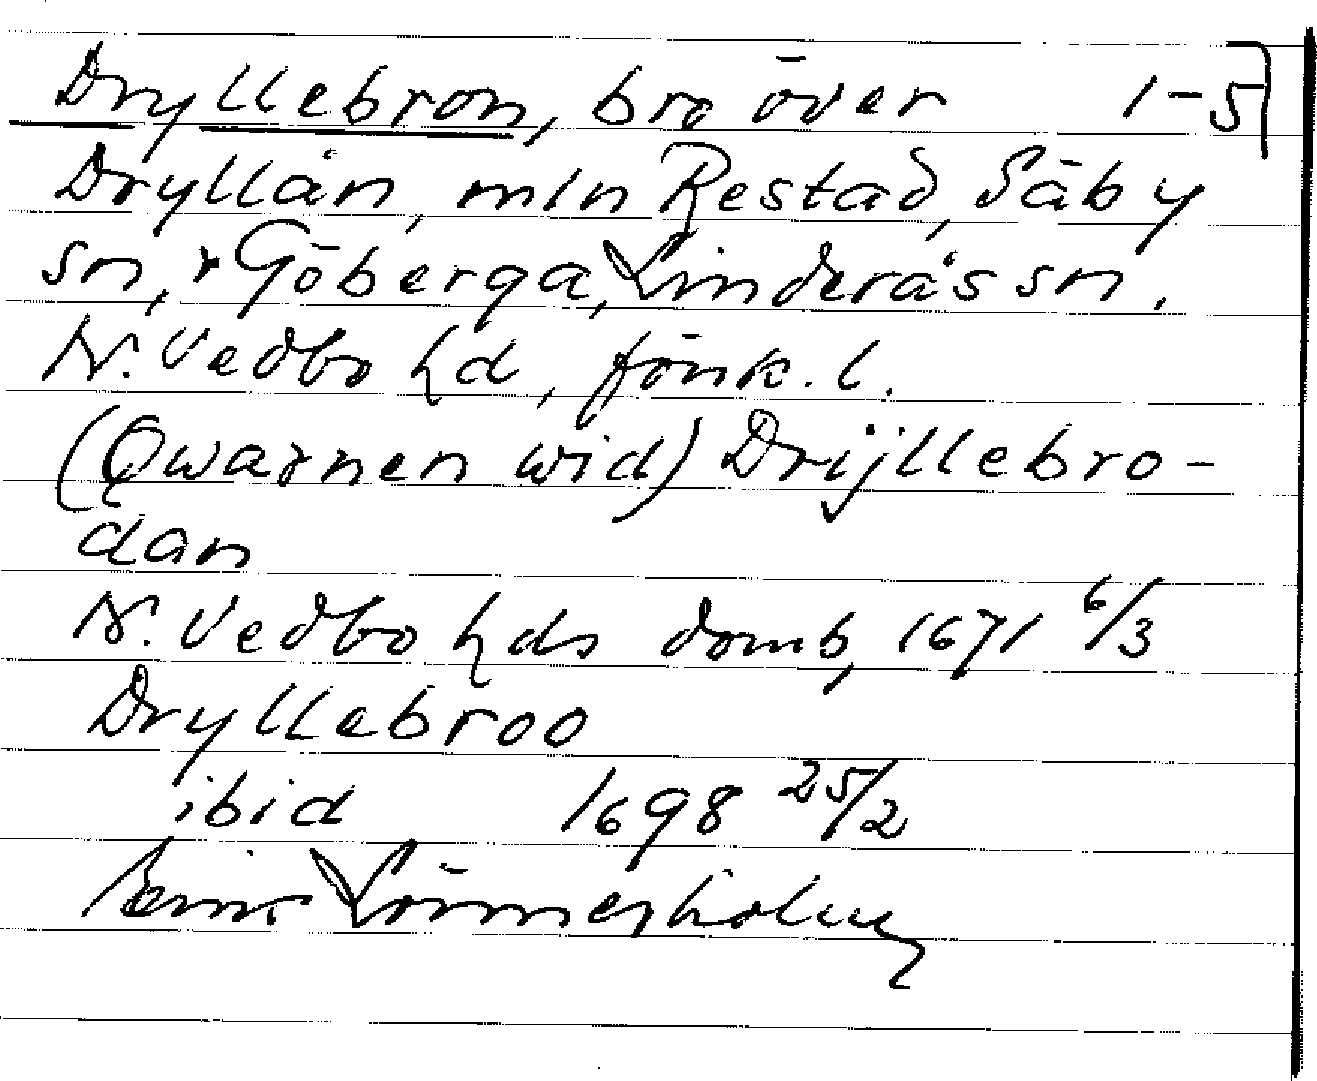 Dryllebron, bro över 1-5]
Dryllån, mln Restad, Säby
sn, + Göberga, Linderås sn.
N. Vedbo hd, Jönk. l.
(Qwarnen wid) Drijllebro-
dan
N. Vedbo hds domb, 1671 6/3
Dryllebroo
ibid 1698 25/2
Linnerholm